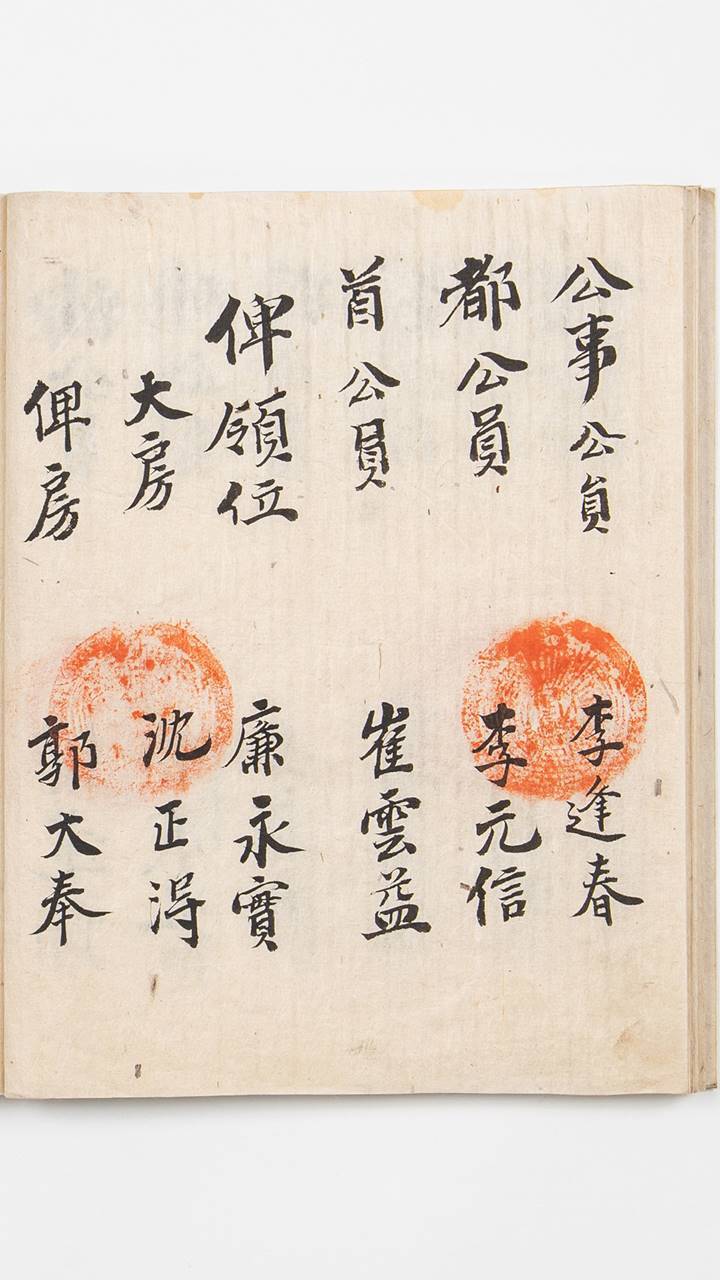 公事公員 李逢春
都公員 李元信
首公員 崔雲益
俾領位 廉永實
大房 沈正得
俾房 郭大奉